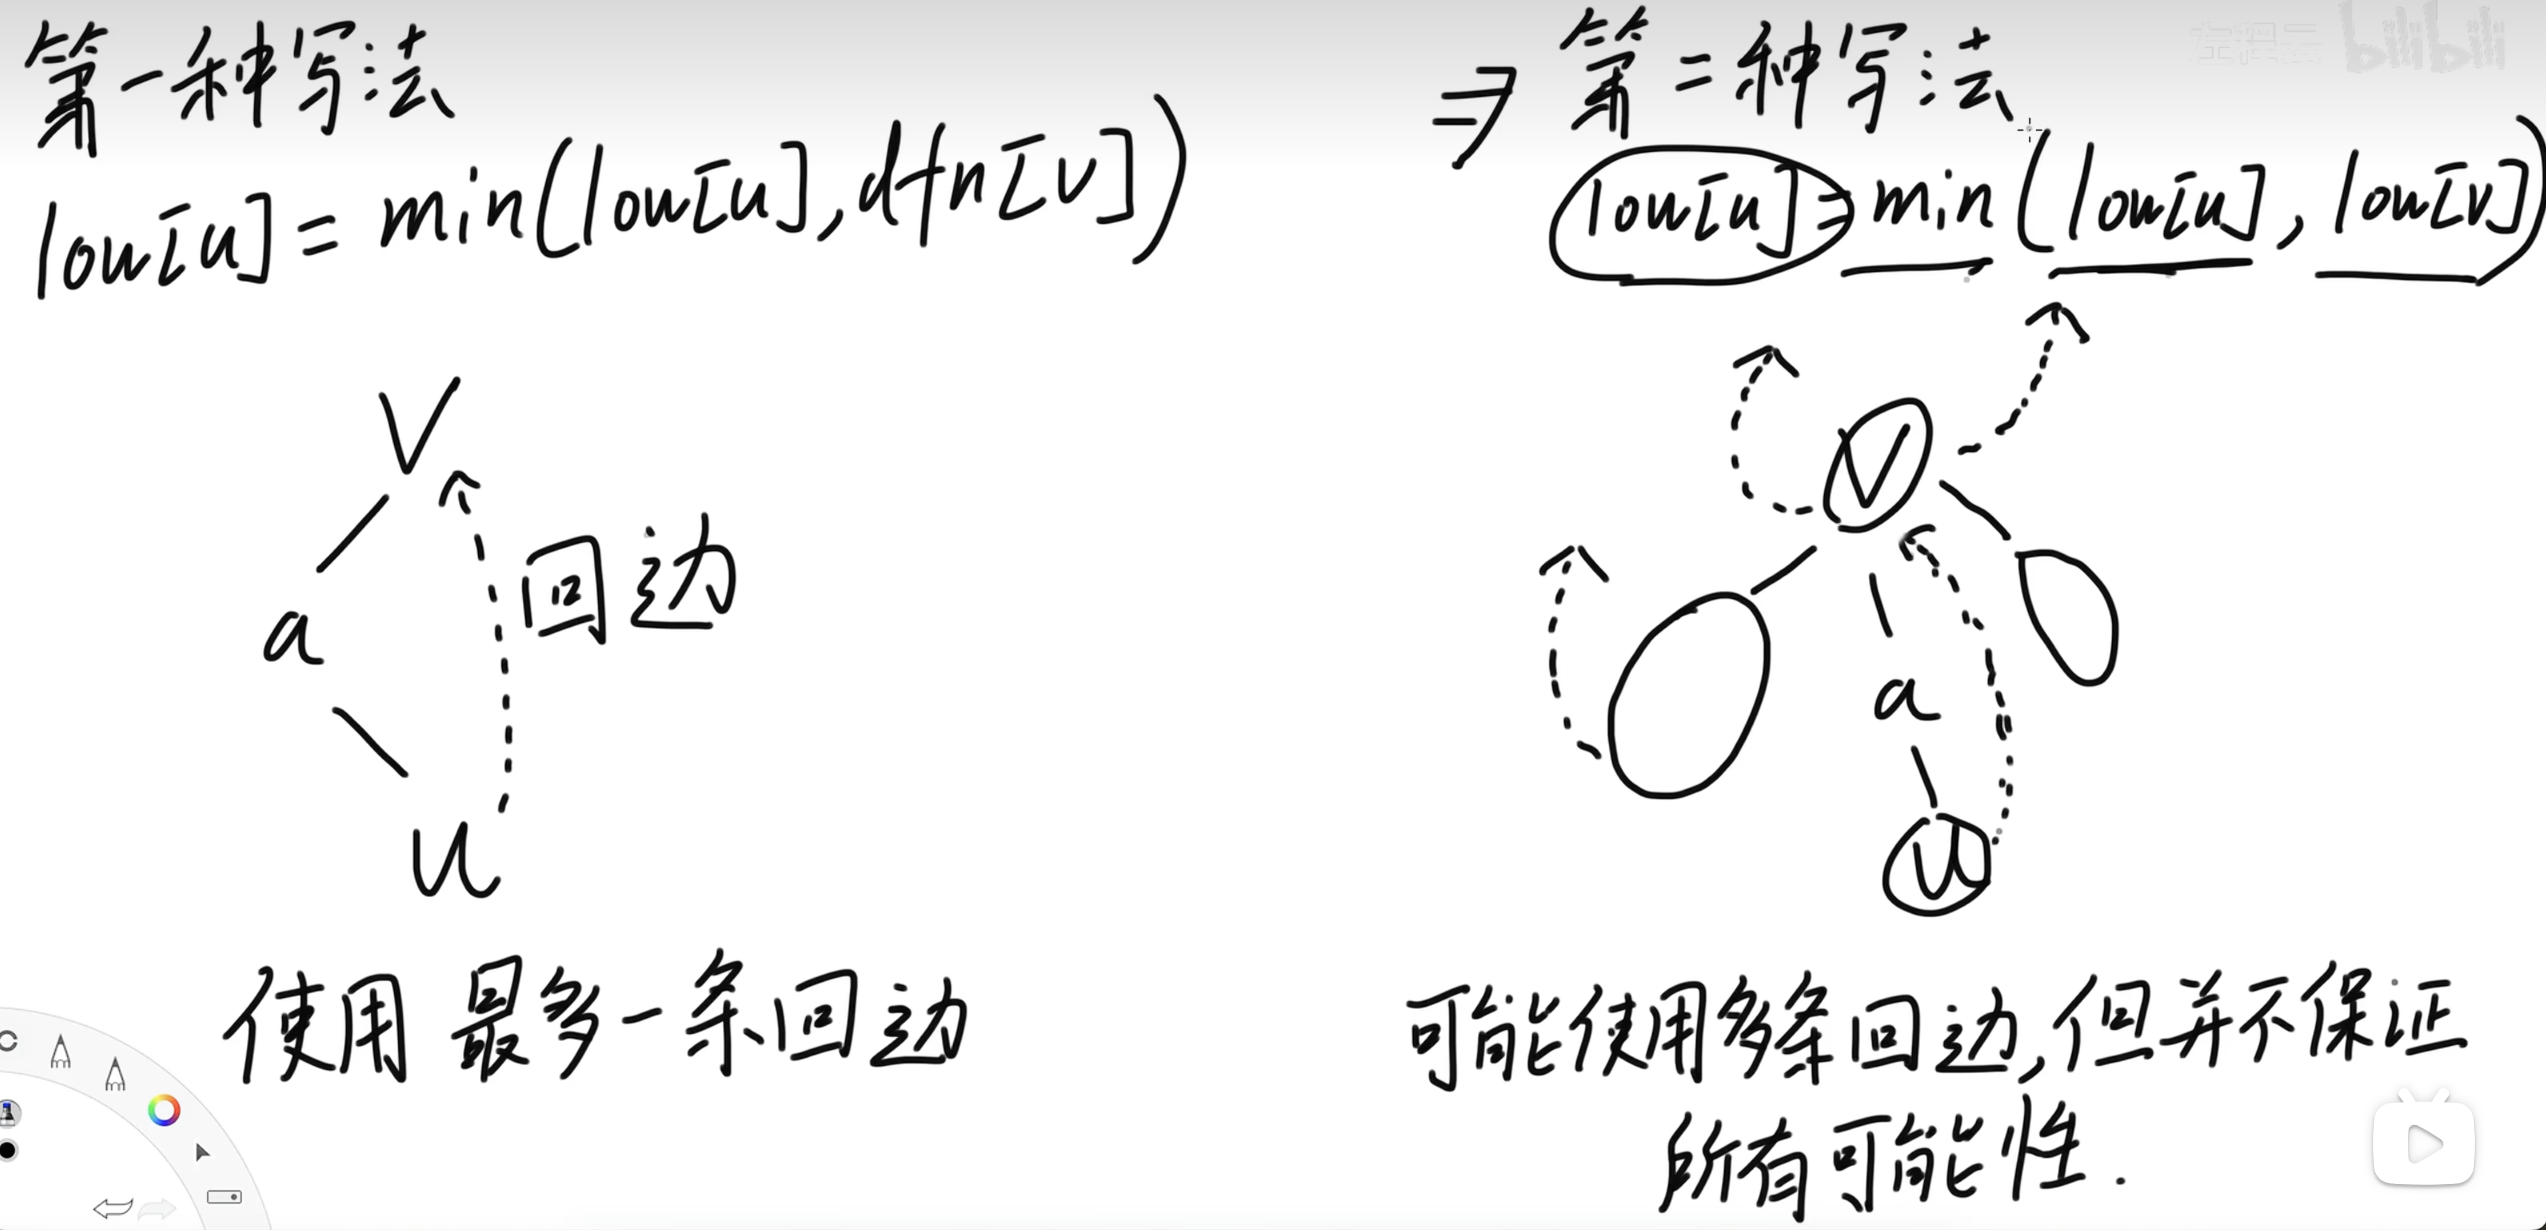 第一种写法
low[u] = min(low[u], dfn[v])
V
a
回边
u
使用 最多一条回边
⇒ 第二种写法
low[u] = min(low[u], low[v])
V
a
u
可能使用多条回边,但并不保证
所有可能性.
左程云 bilibili